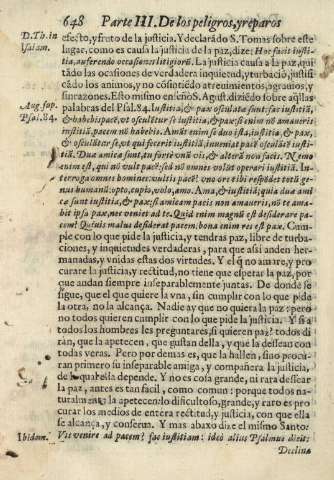 648 Parte III. De los peligros, y reparos
D. Th. in
Isaiam.
efecto, y fruto de la justicia. Y declarãdo S. Tomas sobre este
lugar, como es causa la justicia de la paz, dize: Hoc facit iusti-
tia, auferendo occasiones litigiorũ. La justicia causa a la paz, qui
tãdo las ocasiones de verdadera inquietud, y turbaciõ, justifi
cãdo los animos, y no cõsintiẽdo atreuimientos, agrauios, y
sinrazones. Esto mismo enseñó S. Agustĩ diziẽdo sobre aq̃llas
Aug. sup.
Psal. 84.
palabras del Psal. 84. Iustitia, & pax osculatæ sunt: fac iustitiã,
& habebis pacẽ, vt osculẽtur se iustitia, & pax: si enim nõ amauerit
iustitiã, pacem nõ habebis. Amãt enim se duo ista, iustitia, & pax,
& osculãtur se, vt qui fecerit iustitiã, inueniat pacẽ osculãtẽ
iustitiã. Duæ amicæ sunt, tu fortè vnã vis, & alterã non facis. Nemo
enim est, qui nõ vult pacẽ: sed nõ omnes volũt operari iustitiã. In-
terroga omnes homines: vultis pacẽ? vno ore tibi respõdet totũ ge-
nus humanũ: opto, cupio, volo, amo. Ama, & iustitiã; quia duæ ami
cæ sunt iustitia, & pax: si amicam pacis non amaueris, nõ te ama-
bit ipsa pax, nec veniet ad te. Quid enim magnũ est desiderare pa-
cem? Quiuis malus desiderat pacem: bona enim res est pax. Cum-
ple con lo que pide la justicia, y tendras paz, libre de turba-
ciones, y inquietudes verdaderas, para que assi anden her-
manadas, y vnidas estas dos virtudes. Y el q̃ no amare, y pro
curare la justicia, y rectitud, no tiene que esperar la paz, por
que andan siempre inseparablemente juntas. De donde se
sigue, que el que quiere la vna, sin cumplir con lo que pide
la otra, no la alcança. Nadie ay que no quiera la paz: pero
no todos quieren cumplir con lo que pide la justicia. Y si a
todos los hombres les preguntares, si quieren paz? todos di
rán, que la apetecen, que gustan della, y que la dessean con
todas veras. Pero por demas es, que la hallen, sino procu-
ran primero su inseparable amiga, y compañera la justicia,
de quien ésta depende. Y no es cosa grande, ni rara dessear
la paz, antes es tan facil, como comun: porque todos na-
turalmente la apetecen: lo dificultoso, grande, y raro es pro
curar los medios de entera rectitud, y justicia, con que ella
se alcança, y conserua. Y mas abaxo dize el mismo Santo:
Ibidem.
Vis venire ad pacem? fac iustitiam: ideò alius Psalmus dicit:
Declina